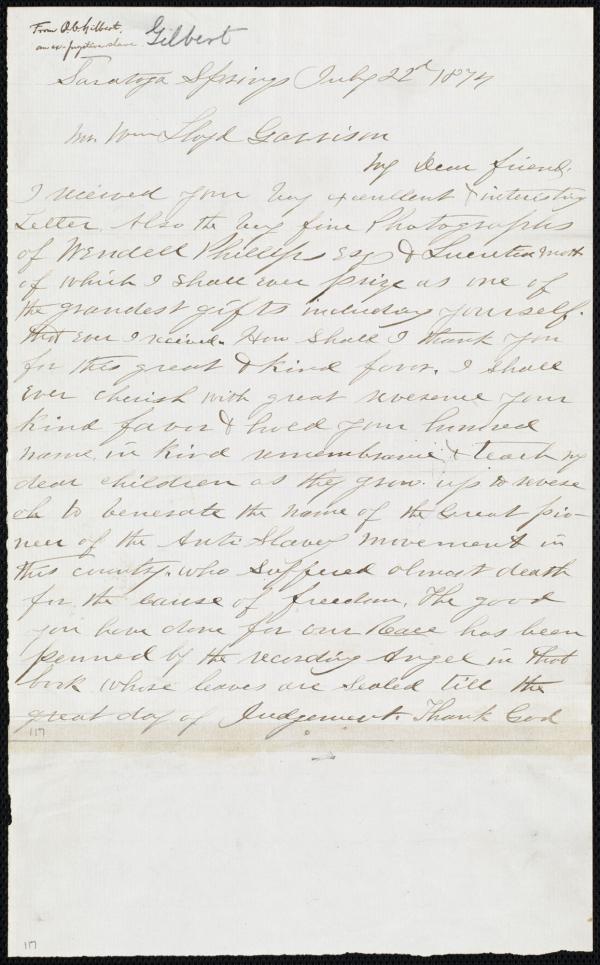 From O. C. Gilbert.
an ex-fugitive slave
Gilbert
Saratoga Springs July 22d 1874
Mr. Wm Lloyd Garrison
My Dear friend.
I received your very excellent & interesting
Letter. Also the very fine Photographs
of Wendell Phillips Esq & Lucretia Mott
of which I shall ever prize as one of
the grandest gifts including yourself.
that ever I received. How shall I thank you
for this great & kind favor. I shall
ever cherish with great reverence your
kind favor & hold your
name in kind remembrance & teach my
dear children as they grow up to
oh to the name of the Great pio-
neer of the Anti Slavery movement in
this country. who suffered almost death
for the cause of freedom. The good
you have done for our Race has been
penned by the recording Angel in that
book whose leaves are sealed till the
great day of Judgement. Thank God
117
117